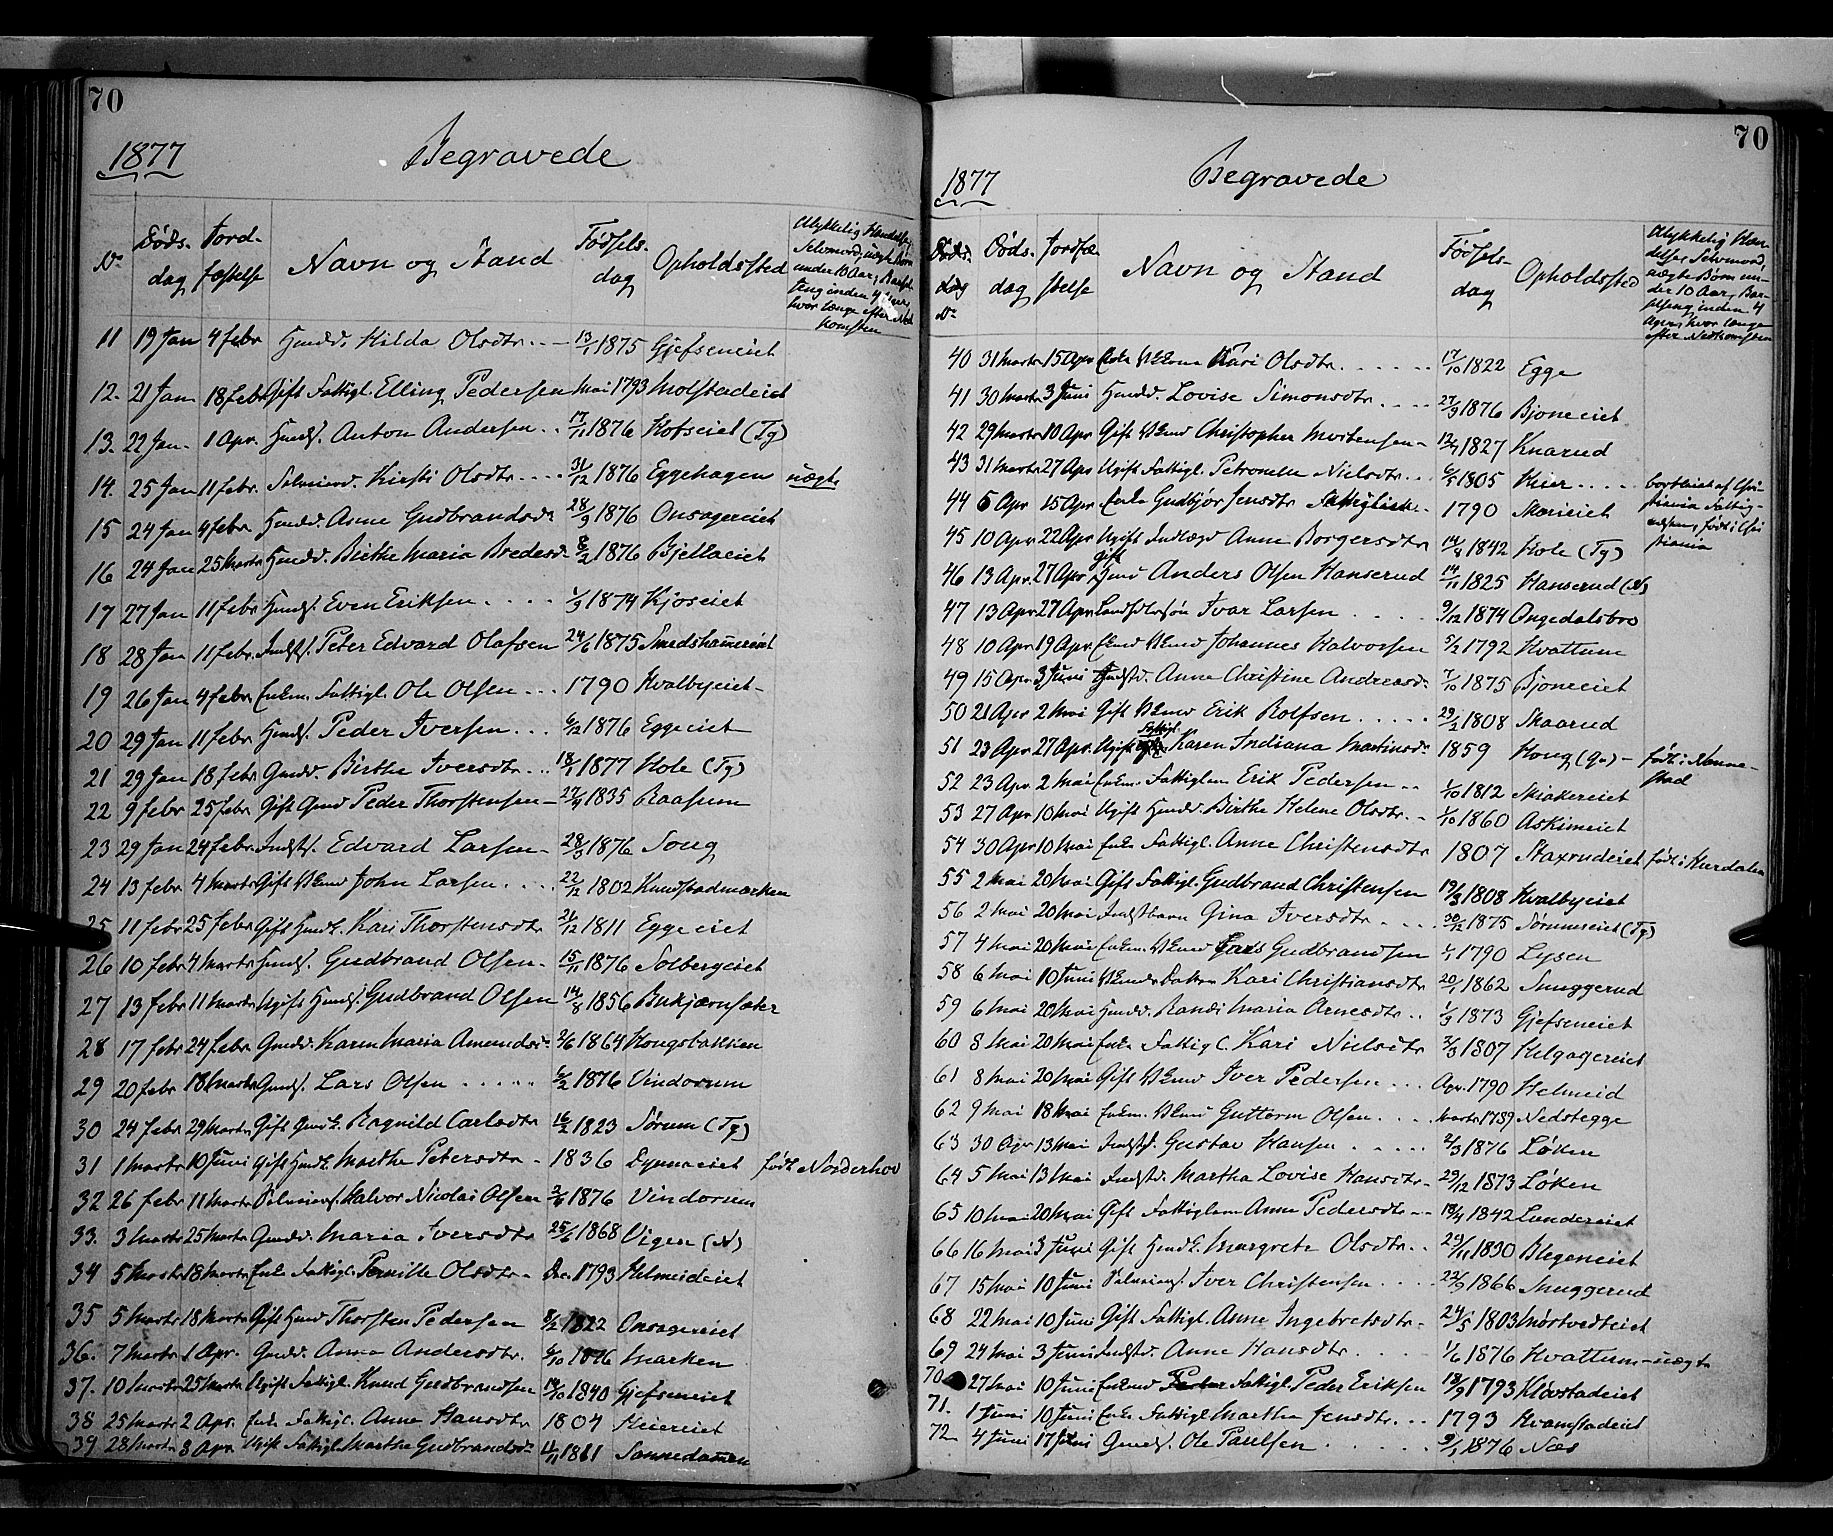 70
1877 Begravede
No Døds-dag Jordfæstelse Navn og Stand Fødselsdag Opholdssted Ulykkelig Hændelse, Selvmord, uægte Børn under 10 Aar, Barselseng inden 4 Uger, hvor længe efter Nedkomsten
11 19 Jan 4 febr Husmd. Hilda Olsdtr. 13/1 1875 Gjefseneiet
12. 21 Jan 18 febr Gift Fattigl. Elling Pedersen Mai 1793 Molstadeiet
13. 22 Jan. 1 Apr. Anton Andersen 17/11 1876 Hofseiet (Tg)
14. 25 Jan 11 febr. Kirsti Olsdtr. 31/12 1876 Eggehagen uægte
15 24 Jan 4 febr Anne Gudbrandsd. 28/9 1876 Onsagereiet
16 24 Jan 25 Marts Birthe Maria Bredesd. 8/2 1876 Bjellaeiet
17 27 Jan 11 febr Even Eriksen 1/9 1874 Kjoseiet
18 28 Jan 11 febr. Peter Edvard Olafsen 24/6 1875 Smedshamereiet
19 26 Jan 4 febr Enkm. Fattigl. Ole Olsen 1790 Hvalbyeiet
20 29 Jan 11 febr Peder Iversen 6/12 1876 Eggeeiet
21 29 Jan 18 febr Gmdd. Birthe Iversdtr. 18/1 1877 Hole (Tg)
22 9 febr 25 febr Gift Gmd Peder Thorstensen 27/4 1835 Raasum
23 29 Jan 24 febr. Edvard Larsen 28/3 1876 Soug
24 13 febr 4 Marts Gift John Larsen 22/12 1802 Knudstadmarken
25 11 febr 25 febr Gift Kari Thorstensdtr 26/12 1811 Eggeeiet
26 10 febr 4 Marts Gudbrand Olsen 15/11 1876 Solbergeiet
27 13 febr 11 Marts Ugift Gudbrand Olsen 14/8 1856
28 17 febr 24 febr Gmdd. Karen Maria Amundsd. 2/6 1864 Hongsbakken
29 20 febr 18 Marts Gmds. Lars Olsen 1876 Vindorum
30 24 febr 29 Marts Gift Ragnild Carlsdtr 16/2 1823 Sørum (Tg)
31 1 Marts 10 Juni Gift Marthe Petersdtr 1836 Dynnaeiet født Norderhov
32 26 febr 11 Marts Halvor Nicolai Olsen 1876 Vindorum
33. 3 Marts 25 Marts Gmdd. Maria Iversdtr 25/6 1868 Vigen (N)
34 5 Marts 18 Marts Enke Fattigl. Pernille Olsdtr. Dec. 1793 Helmeideiet
35 5 Marts 18 Marts Gift Thorsten Pedersen 8/2 1822 Onsagereiet
36. 7 Marts 1 Apr. Gmdd. Anna Andersdtr. 6/10 1876 Marken
37. 10 Marts 25 Marts Ugift Fattigl. Knud Gudbrandsen 1840 Gjefseneiet
38 25 Marts 2 Apr. Enke Fattigl. Anne Hansdtr 1804 Heiereiet
39 28 Marts 8 Apr Ugift Fattigl. Marthe Gudbrandsd. 11/11 1861 Sannedammen
70
1877 Begravede
Døds-dag No Dødsdag Jordfæstelse Navn og Stand Fødselsdag Opholdssted Ulykkelig Hændelse, Selvmord, uægte Børn under 10 Aar, Barselseng inden 4 Uger, hvor længe efter Nedkomsten
40 31 Marts 15 Apr Enke Kari Olsdtr 17/10 1822 Egge
41 30 Marts 3 Juni Lovise Simonsdtr 27/9 1876 Bjoneeiet
42 29 Marts 10 Apr Gift Christopher Mortensen 12/4 1827 Knarud
43 31 Marts 27 Apr Ugift Fattigl. Petronelle Nielsdtr 6/5 1805 Heier bortleiet af Christiania Fattigvæsen, født i Christiania
44 6 Apr 15 Apr Enke Gudbjør Jensdtr Fattiglem 1790 Morieiet
45 10 Apr 22 Apr Ugift Indlagd Anne Borgersdtr 14/4 1842 Hole (Tg)
46 13 Apr 27 Apr gift Anders Olsen Hanserud 14/11 1825 Hanserud (N)
47 13 Apr 27 Apr Ivar Larsen 9/12 1874 Ongedalsbro
48 10 Apr 19 Apr Johannes Halvorsen 5/2 1792 Hvattum
49 15 Apr 3 Juni Anne Christine Andreasd. 7/10 1875 Bjoneeiet
50 21 Apr 2 Mai Gift Erik Rolfsen 29/2 1808 Skaarud
51 23 Apr 27 Apr. Ugift Fattigl. Karen Indiana Martinsd. 1859 Houg (Gr) født i Nannestad
52 23 Apr 2 Mai Enkm. Fattiglem Erik Pedersen 1/10 1812 Skiakereiet
53 27 Apr 10 Mai Ugift Birthe Helene Olsdtr. 1/10 1860 Askimeiet
54 30 Apr 10 Mai Enke Fattigl. Anne Christensdtr 1807 Staxrudeiet født i Hurdalen
55 2 Mai 20 Mai Gift Fattigl. Gudbrand Christensen 19/3 1808 Hvalbyeiet
56 2 Mai 20 Mai Gina Iversdtr 30/12 1875 Sørumseiet (Tg)
57 4 Mai 20 Mai Enkm. Lars Gudbrandsen 1790 Lysen
58 6 Mai 10 Juni Kari Christiansdtr 20/1 1862 Snuggerud
59 6 Mai 20 Mai Randi Maria Arnesdtr 1/3 1873 Gjefseneiet
60 8 Mai 20 Mai Enke Fattigl. Kari Nielsdtr 3/3 1807 Helgagereiet
61 8 Mai 20 Mai Gift Iver Pedersen Apr. 1790 Helmeid
62 9 Mai 18 Mai Enkm. Guttorm Olsen Marts 1789 Nedstegge
63 30 Apr 13 Mai Gustav Hansen 2/3 1876 Løken
64 5 Mai 13 Mai Martha Lovise Hansdtr 29/12 1873 Løken
65 10 Mai 20 Mai Gift Fattiglem Anne Pedersdtr 18/4 1842 Lundereiet
66 16 Mai 3 Juni Gift Margrete Olsdtr. 29/11 1830 Blegeneiet
67 15 Mai 10 Juni Iver Christensen 22/9 1866 Snuggerud
68 22 Mai 10 Juni Gift Fattigl. Anne Ingebretsdtr 24/5 1803 Mørtvedteiet
69 24 Mai 3 Juni Anne Hansdtr 1/6 1876 Hvattum uægte
70 27 Mai 10 Juni Fattigl. Peder Eriksen 18/9 1793 Kløvstadeiet
71. 1 Juni 10 Juni Enke Fattigl. Marthe Jensdtr 1793 Hvamstadeiet
72 4 Juni 17 Juni Gmds. Ole Paulsen 9/1 1876 Næs